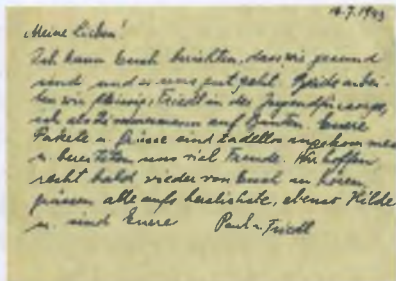 14.7.1943
Meine Lieben!
Ich kann Euch berichten, dass wir gesund
sind und es uns gut geht. Beide arbei-
ten wir fleissig, Friedl in der Jugendfürsorge,
ich als Zimmermann auf Bauten. Euere
Pakete u. Grüsse sind tadellos angekommen
u. bereiteten uns viel Freude. Wir hoffen
recht bald wieder von Euch zu hören,
grüssen alle aufs herzlichste, ebenso Hilde
u. sind Euere Paul u. Friedl